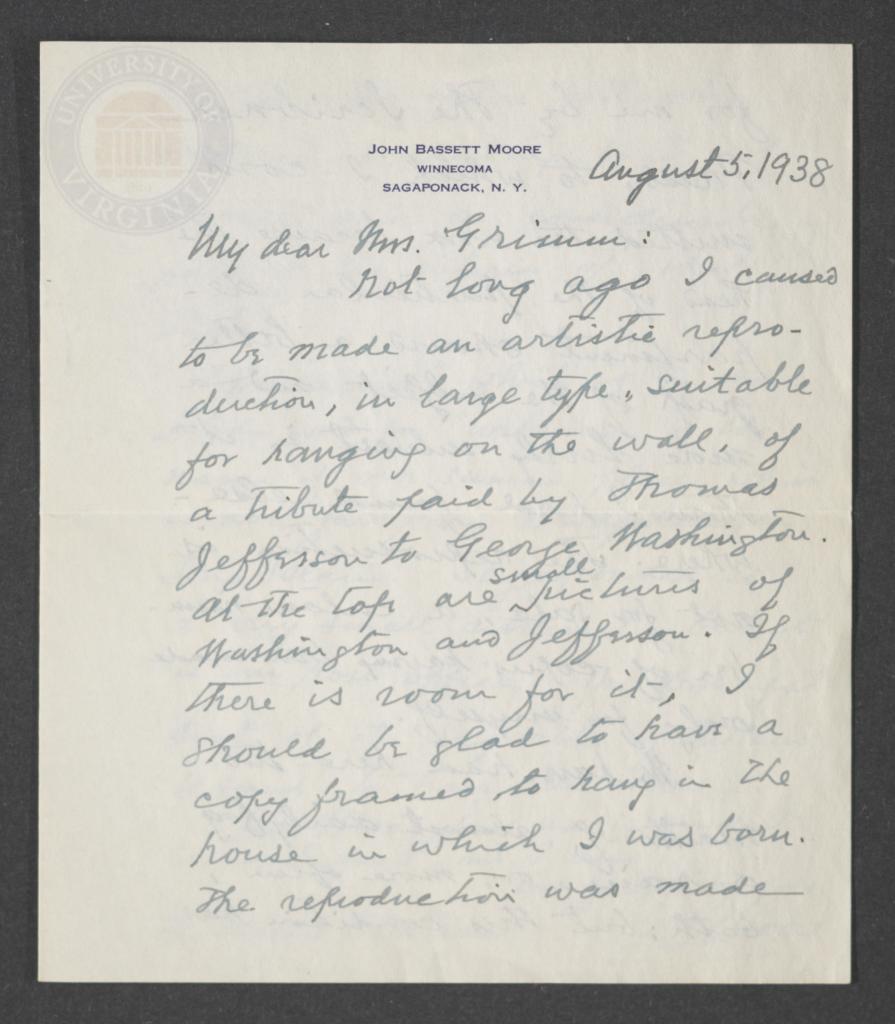 UNIVERSITY OF VIRGINIA
JOHN BASSETT MOORE
WINNECOMA
SAGAPONACK, N. Y.
August 5, 1938
My dear Mrs. Grimm:
Not long ago I caused
to be made an artistic repro-
duction, in large type, suitable
for hanging on the wall, of
a tribute paid by Thomas
Jefferson to George Washington.
At the top are small pictures of
Washington and Jefferson. If
there is room for it, I
should be glad to have a
copy framed to hang in the
house in which I was born.
The reproduction was made